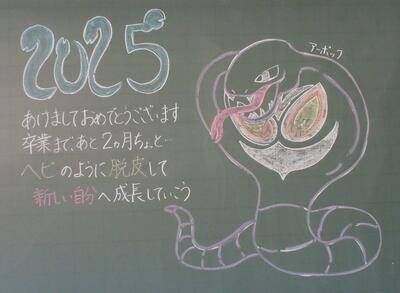 2025
あけましておめでとうございます
卒業まで、あと2ヵ月ちょと…
ヘビのように脱皮して
新しい自分へ成長していこう
アーボック